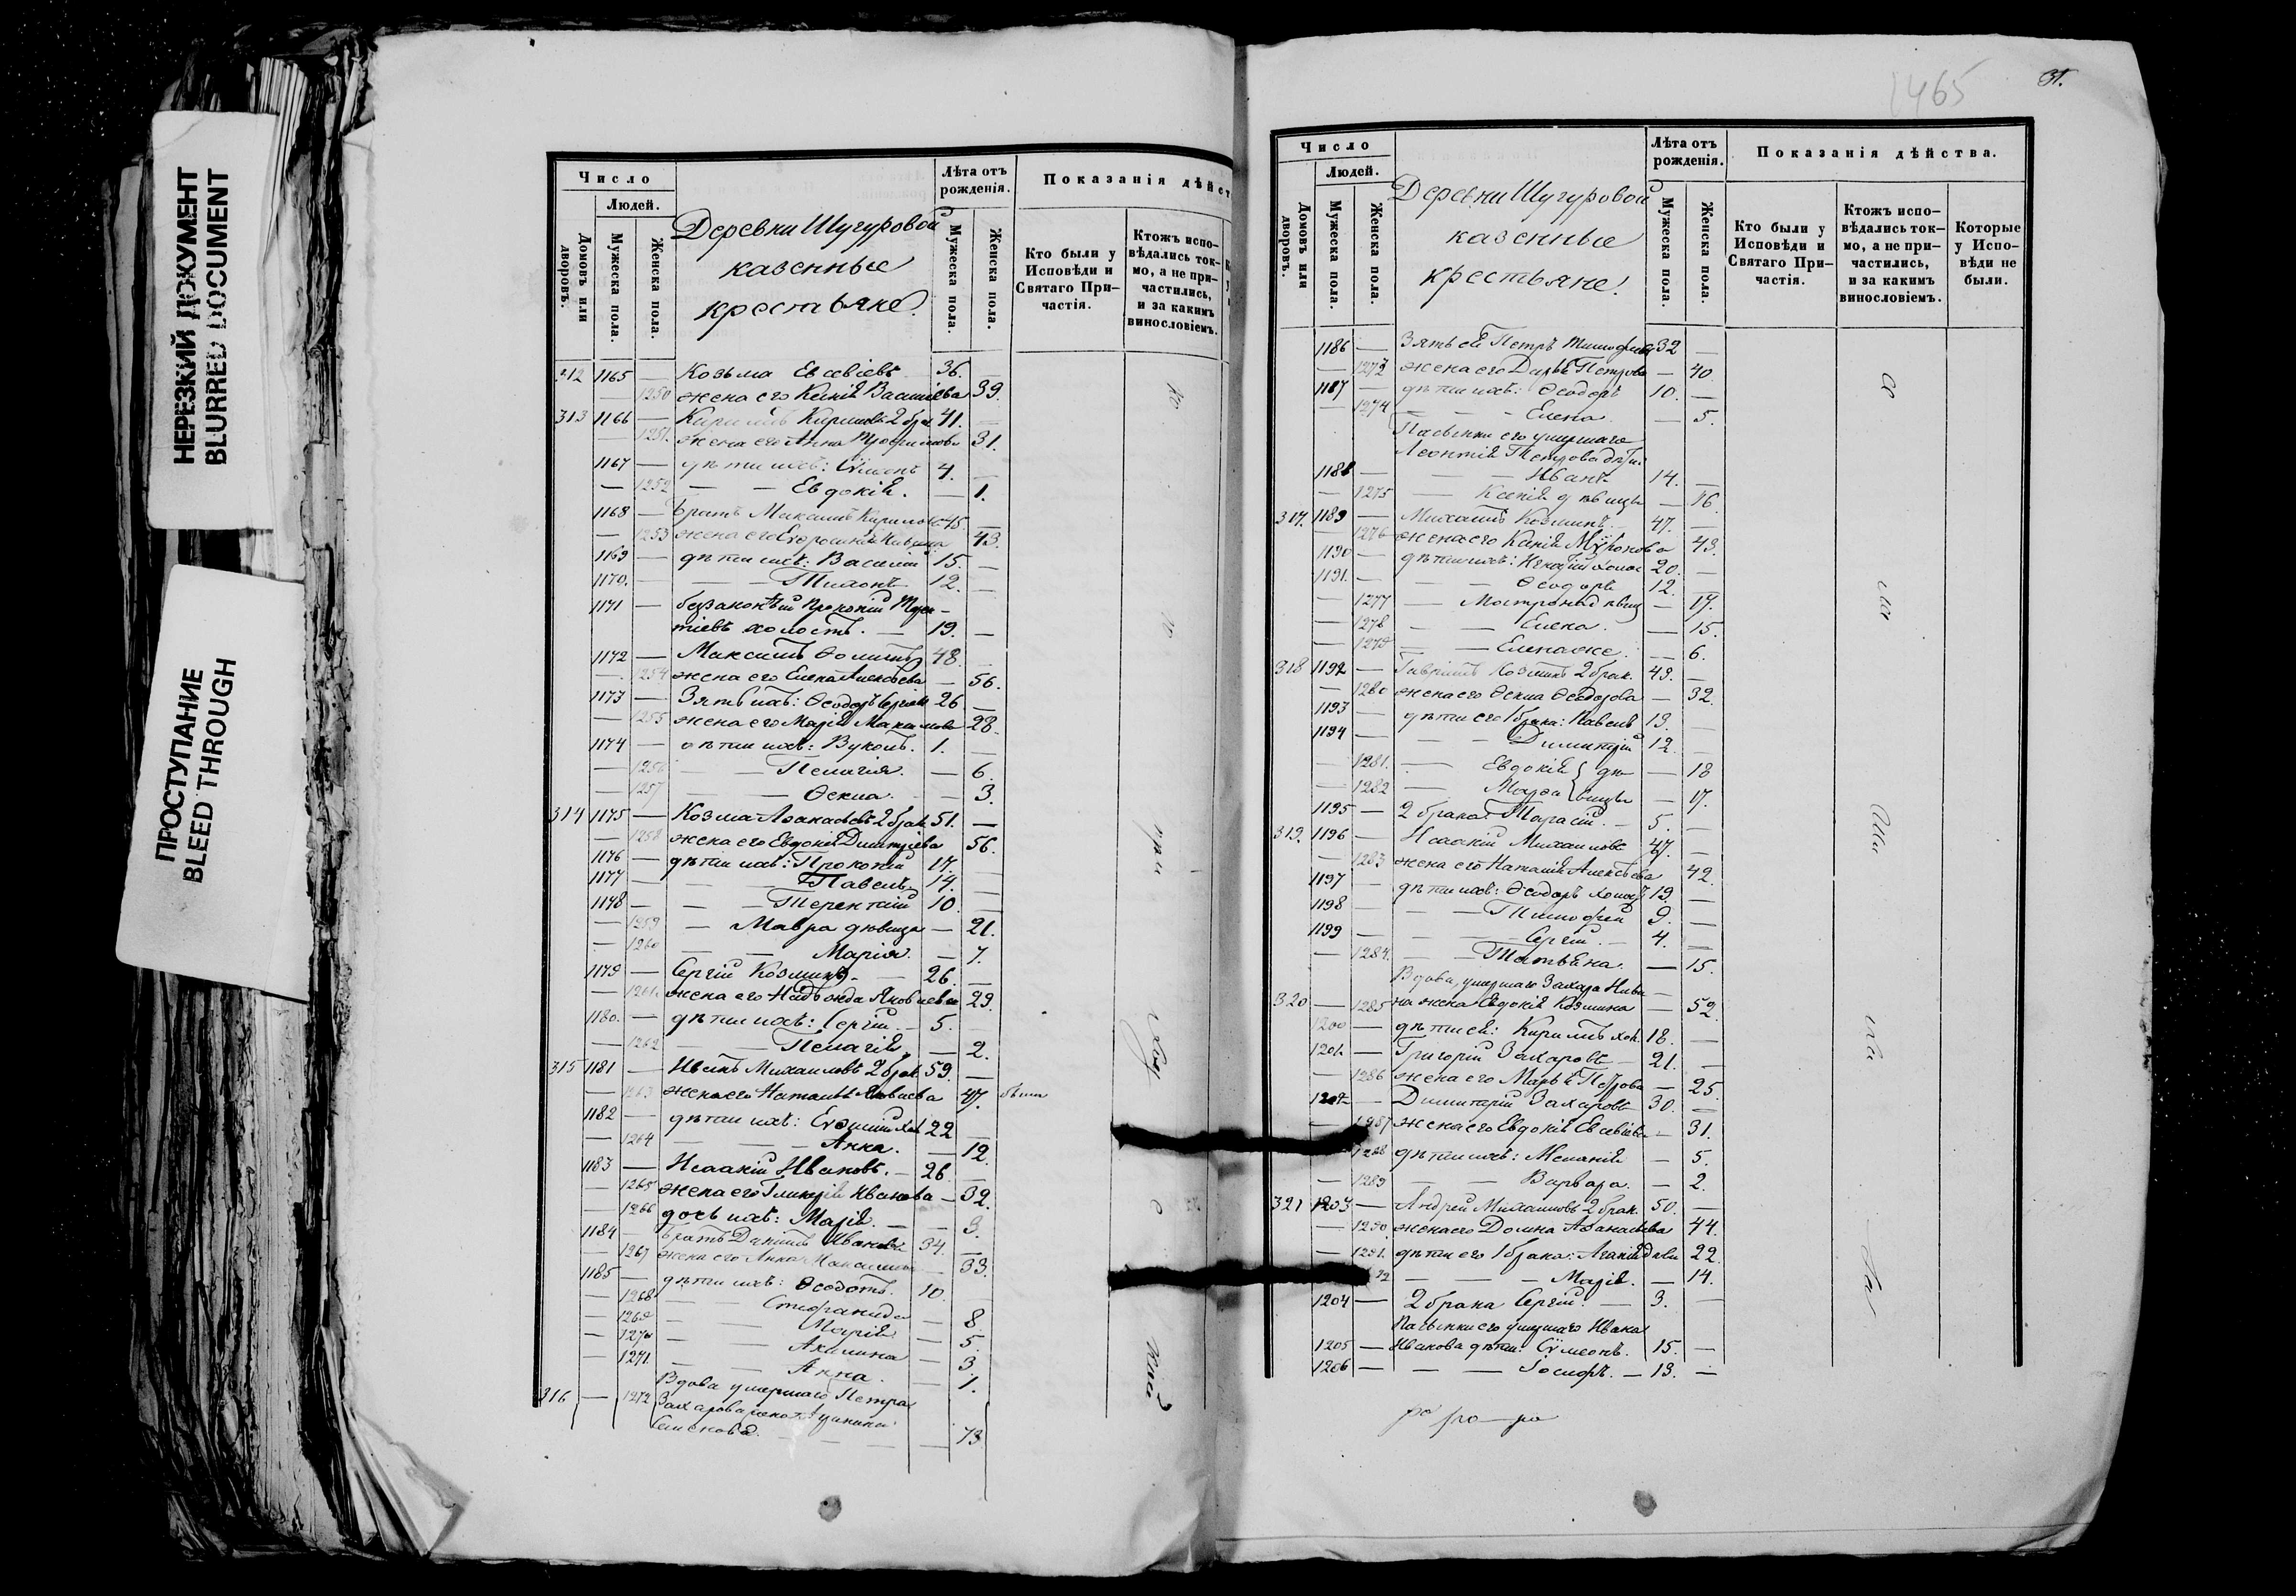 НЕРЕЗКИЙ ДОКУМЕНТ
BLURRED DOCUMENT
ПРОСТУПАНИЕ
BLEED THROUGH
Число
Людей.
Домовъ или дворовъ.
Мужеска пола.
Женска пола.
Деревни Шугуровой
казенные
крестьяне.
Лѣта отъ рожденія.
Мужеска пола.
Женска пола.
Показанія дѣйст
Кто были у Исповѣди и Святаго Причастія.
Ктожъ исповѣдались токмо, а не причастились, и за какимъ винословіемъ.
312 1165 — Козьма Евсевіевъ 36. —
— 1250 жена его Ксенія Василіева 39.
313 1166 — Кирилъ Кириловъ 2 брак. 41. —
— 1251. жена его Анна 31.
1167 — дѣти ихъ: Сѵмеонъ 4. —
— 1252 — — Евдокія. — 1.
1168 — братъ Максимъ Кириловъ 45. —
— 1253 жена его 43.
1169 — дѣти ихъ: Василій 15. —
1170. — — — Тихонъ 12. —
1171 — Прокопій
холостъ. — 19. —
1172 — Максимъ Ѳоминъ 48. —
— 1254 жена его Елена Алексѣева — 56.
1173 — Зять ихъ: Ѳеодоръ 26 —
— 1255 жена его Марія Максимова 28.
1174 — дѣти ихъ: Вуколъ. 1. —
— 1256 — — Пелагія. — 6.
— 1257 — — Ѳекла. — 3.
314 1175 — Козма Аѳанасьевъ 2 брак. 51. —
— 1258 жена его Евдокія Димитріева 56.
1176 — дѣти ихъ: Прокопій 17. —
1177 — — — Павелъ 14. —
1178 — — — Терентій 10. —
— 1259 — Мавра дѣвица — 21.
— 1260 — — Марія. — 7.
1179 — Сергій Козминъ. — 26. —
— 1261. жена его Надѣжда Яковлева 29.
1180. — дѣти ихъ: Сергій. — 5. —
— 1262 — — Пелагія — 2.
315 1181 — Иванъ Михаиловъ 2 брак. 59. —
— 1263 жена его Наталія Яковлева 47. были
1182 — дѣти ихъ: хол. 22 —
— 1264 — — — Анна. — 12.
1183 — Исаакій Ивановъ. — 26. —
— 1265 жена его Гликерія Иванова — 32.
— 1266 дочь ихъ: Марія. — — 3.
1184 — братъ Даніилъ Ивановъ 34. —
— 1267 жена его Анна Максимова — 33.
1185 — дѣти ихъ: Ѳеодотъ. 10. —
— 1268 — — Стефанида — 8
— 1269 — — Марія — 5.
— 1270 — — Акилина — 3
— 1271. — — Анна. — 1.
316 — 1272 Вдова умершаго Петра
Захарова жена
Семенова. — — — 73
1465
31.
Число
Людей.
Домовъ или дворовъ.
Мужеска пола.
Женска пола.
Деревни Шугуровой
казенные
крестьяне.
Лѣта отъ рожденія.
Мужеска пола.
Женска пола.
Показанія дѣйства.
Кто были у Исповѣди и Святаго Причастія.
Ктожъ исповѣдались токмо, а не причастились, и за какимъ винословіемъ.
Которые у Исповѣди не были.
1186 — Зять ей Петръ Тимофеевъ 32 —
— 1273 жена его Дарья Петрова — 40.
1187 — дѣти ихъ: Ѳеодоръ 10. —
— 1274 — — — Елена — 5.
Пасынки его умершаго
Леонтія Петрова дѣти:
1188 — — — Иванъ 14. —
— 1275 — Ксенія дѣвица — 16.
317. 1189 — Михаилъ Козминъ. 47. —
— 1276 жена его Ксенія Мѵронова 43.
1190 — дѣти ихъ: холос. 20. —
1191. — — — Ѳеодоръ 12. —
— 1277 — Матрона дѣвиц. — 17.
— 1278 — — Елена. — 15.
— 1279 — — Елена же. — 6.
318 1192 — Гавріилъ Козминъ 2 брак. 43. —
— 1280 жена его Ѳекла Ѳеодорова — 32.
1193 — дѣти его 1 брака: Павелъ 13. —
1194 — — — Димитрій 12. —
— 1281. — Евдокія } дѣ — 18
— 1282 — Марѳа } вицы — 17.
1195 — 2 брака Тарасій. — 5. —
319. 1196 — Исаакій Михаиловъ 47. —
— 1283 жена его Наталія Алексѣева 42.
1197 — дѣти ихъ: Ѳеодоръ холост. 19. —
1198 — — — Тимофей 9. —
1199 — — — Сергій. — 4. —
— 1284. — — Татьяна. — 15.
Вдова, умершаго Захара Ники—
320 — 1285 на жена Евдокія Козмина — 52.
1200 — дѣти ей: Кирилъ хол. 18. —
1201. — Григорій Захаровъ 21. —
— 1286 жена его Марья Петрова — 25.
1202 — Димитрій Захаровъ 30. —
— 1287 жена его Евдокія Евсевіева — 31.
1288 дѣти ихъ: Меланія — 5.
— 1289 — — Варвара. — 2.
321 1203 — Андрей Михаиловъ 2 брак. 50. —
— 1290. жена его Домна Аѳанасьева 44.
— 1291. дѣти его 1 брака: Агапія дѣви 22.
— — — Марія. — 14.
1204 — 2 брака Сергій. — 3. —
Пасынки его умершаго Ивана
1205 — Иванова дѣти: Сѵмеонъ. 15. —
1206 — — — Іосифъ. — 13. —